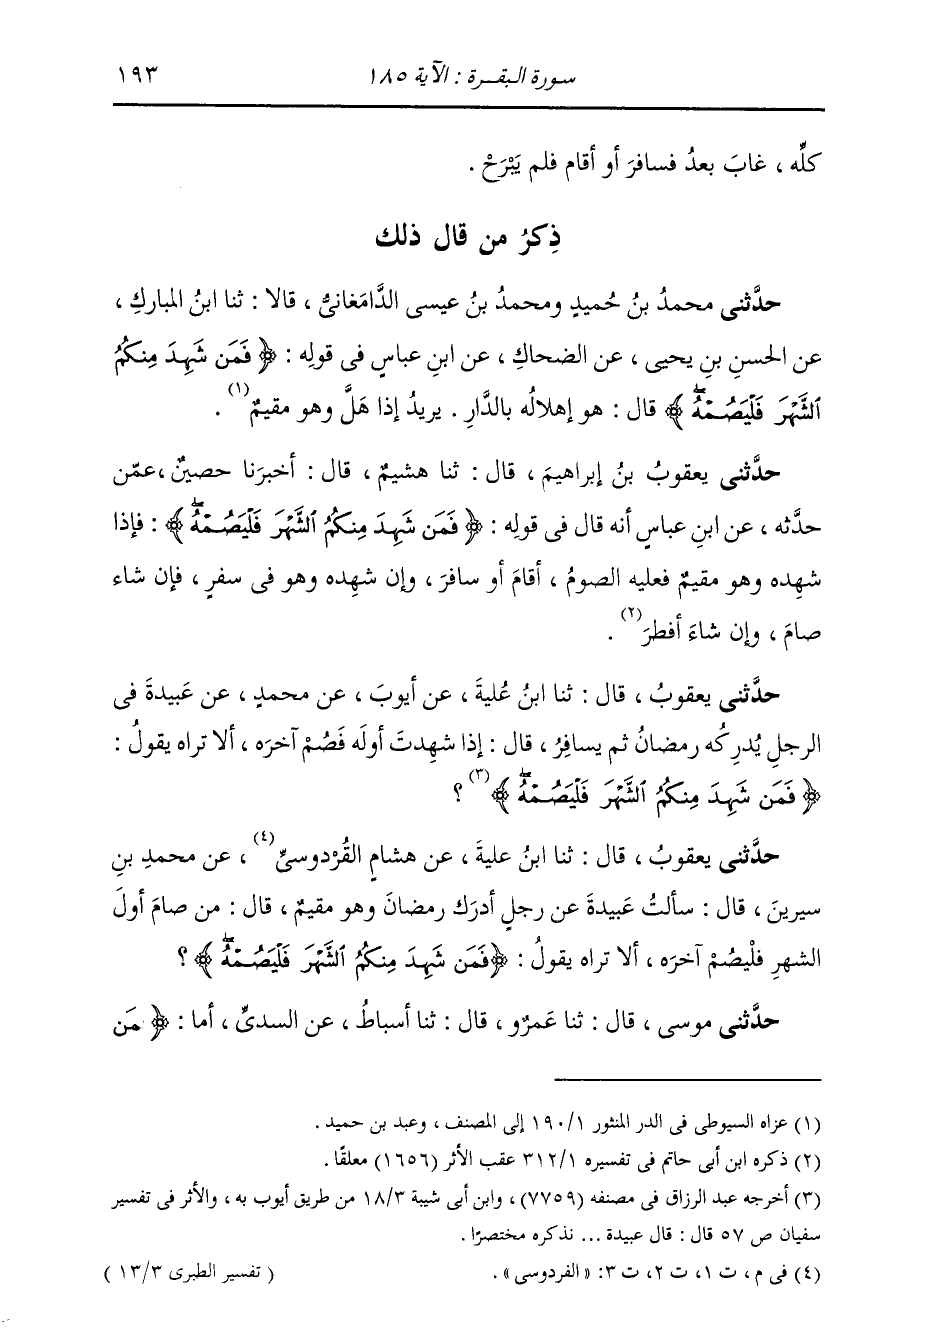 سورة البقرة : الآية ١٨٥ ١٩٣
كلِّه ، غابَ بعدُ فسافرَ أو أقام فلم يَبْرَحْ .
ذِكرُ من قال ذلك
حدَّثنى محمدُ بنُ حُميدٍ ومحمدُ بنُ عيسى الدَّامَغانىُّ ، قالا : ثنا ابنُ المباركِ ،
عن الحسنِ بنِ يحيى ، عن الضحاكِ ، عن ابنِ عباسٍ فى قولِه : ﴿ فَمَن شَهِدَ مِنكُمُ
ٱلشَّهْرَ فَلْيَصُمْهُۖ ﴾ قال : هو إهلالُه بالدَّارِ . يريدُ إذا هَلَّ وهو مقيمٌ (١) .
حدَّثنى يعقوبُ بنُ إبراهيمَ ، قال : ثنا هشيمٌ ، قال : أخبرَنا حصينٌ ، عمّن
حدَّثه ، عن ابنِ عباسٍ أنه قال فى قولِه : ﴿ فَمَن شَهِدَ مِنكُمُ ٱلشَّهْرَ فَلْيَصُمْهُۖ ﴾ : فإذا
شهِده وهو مقيمٌ فعليه الصومُ ، أقامَ أو سافرَ ، وإن شهِده وهو فى سفرٍ ، فإن شاء
صامَ ، وإن شاءَ أفطرَ (٢) .
حدَّثنى يعقوبُ ، قال : ثنا ابنُ عُليةَ ، عن أيوبَ ، عن محمدٍ ، عن عَبيدةَ فى
الرجلِ يُدرِكُه رمضانُ ثم يسافِرُ ، قال : إذا شهِدتَ أولَه فَصُمْ آخرَه ، ألا تراه يقولُ :
﴿ فَمَن شَهِدَ مِنكُمُ ٱلشَّهْرَ فَلْيَصُمْهُۖ ﴾ (٣) ؟
حدَّثنى يعقوبُ ، قال : ثنا ابنُ عليةَ ، عن هشامٍ القُرْدوسىِّ (٤) ، عن محمدِ بنِ
سيرينَ ، قال : سألتُ عَبيدةَ عن رجلٍ أدرَك رمضانَ وهو مقيمٌ ، قال : من صامَ أولَ
الشهرِ فلْيصُمْ آخرَه ، ألا تراه يقولُ : ﴿فَمَن شَهِدَ مِنكُمُ ٱلشَّهْرَ فَلْيَصُمْهُۖ ﴾ ؟
حدَّثنى موسى ، قال : ثنا عَمرٌو ، قال : ثنا أسباطُ ، عن السدىِّ ، أما : ﴿ مَن
(١) عزاه السيوطى فى الدر المنثور ١٩٠/١ إلى المصنف ، وعبد بن حميد .
(٢) ذكره ابن أبى حاتم فى تفسيره ٣١٢/١ عقب الأثر (١٦٥٦) معلقًا .
(٣) أخرجه عبد الرزاق فى مصنفه (٧٧٥٩) ، وابن أبى شيبة ١٨/٣ من طريق أيوب به ، والأثر فى تفسير
سفيان ص ٥٧ قال : قال عبيدة ... نذكره مختصرًا .
(٤) فى م ، ت ١ ، ت ٢ ، ت ٣ : « الفردوسى » . ( تفسير الطبرى ١٣/٣ )